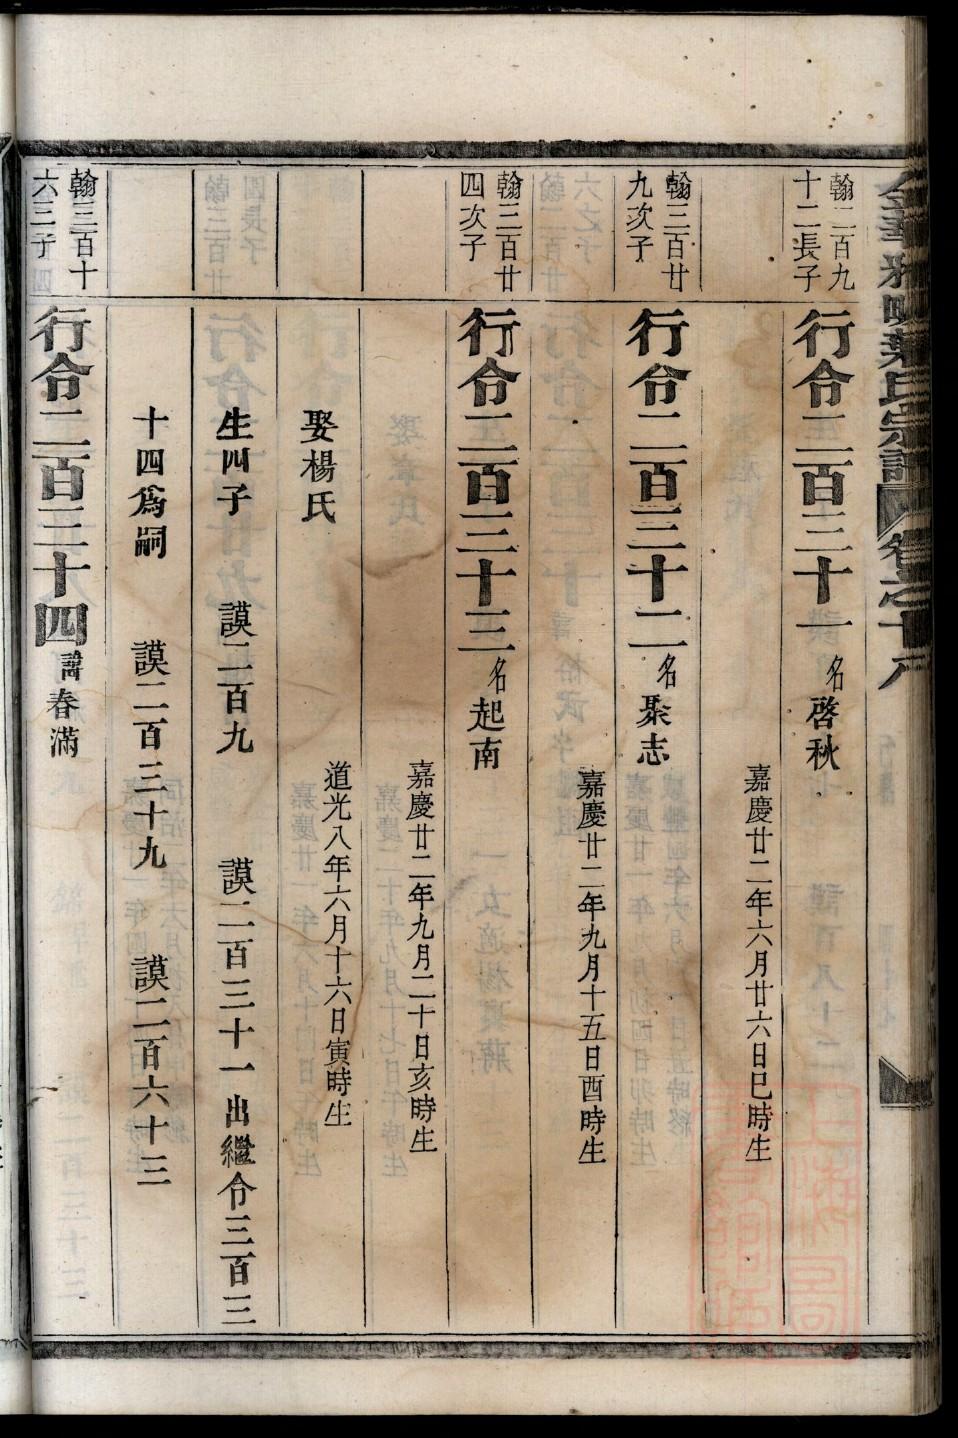 金華雅畈葉氏宗譜 卷之十八
翰二百九
十二長子
行令二百三十一 名啓秋
嘉慶廿二年六月廿六日巳時生
翰三百廿
九次子
行令二百三十二 名聚志
嘉慶廿二年九月十五日酉時生
翰三百廿
四次子
行令二百三十三 名起南
嘉慶廿二年九月二十日亥時生
娶楊氏
道光八年六月十六日寅時生
生四子 謨二百九 謨二百三十一出繼令三百三
十四爲嗣 謨二百三十九 謨二百六十三
翰三百十
六三子
行令二百三十四 諱春滿